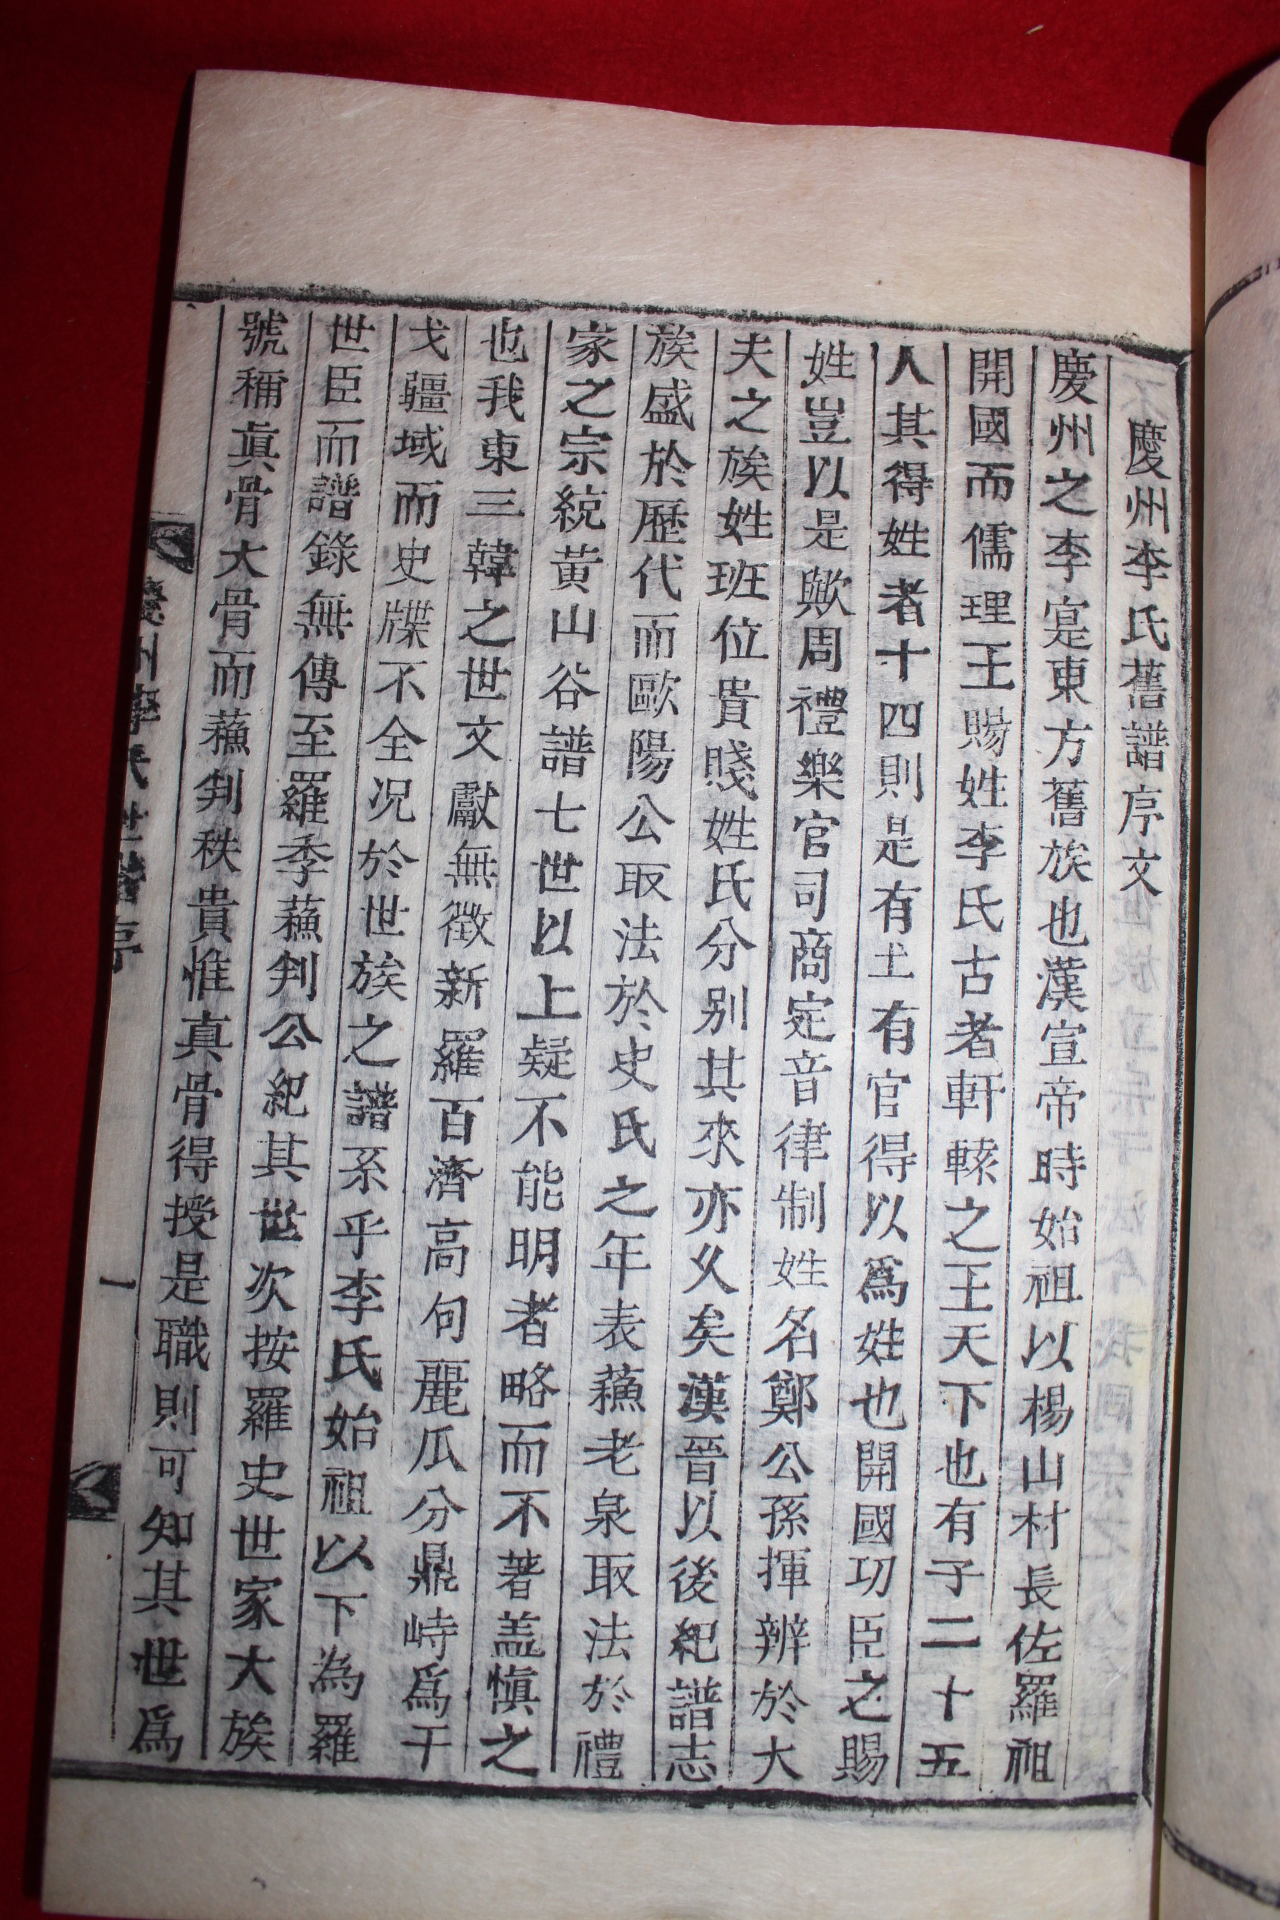 慶州李氏舊譜序文
慶州之李寔東方舊族也漢宣帝時始祖以楊山村長佐羅祖
開國而儒理王賜姓李氏古者軒轅之王天下也有子二十五
人其得姓者十四則是有土有官得以爲姓也開國功臣之賜
姓豈以是歟周禮樂官司商定音律制姓名鄭公孫揮辨於大
夫之族姓班位貴賤姓氏分別其來亦久矣漢晉以後紀譜志
族盛於歷代而歐陽公取法於史氏之年表蘓老泉取法於禮
家之宗統黄山谷譜七世以上疑不能明者略而不著盖愼之
也我東三韓之世文獻無徵新羅百濟高句麗瓜分鼎峙爲干
戈疆域而史牒不全况於世族之譜系乎李氏始祖以下為羅
世臣而譜錄無傳至羅季蘓判公紀其世次按羅史世家大族
號稱眞骨大骨而蘓判秩貴惟真骨得授是職則可知其世爲
慶州李氏世譜序
一